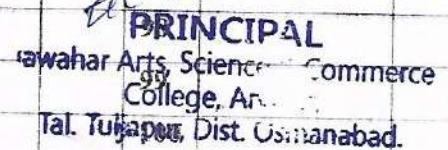 PRINCIPAL
awahar Arts, Science Commerce
College, An
Tal. Tuljapur, Dist. Osmanabad.